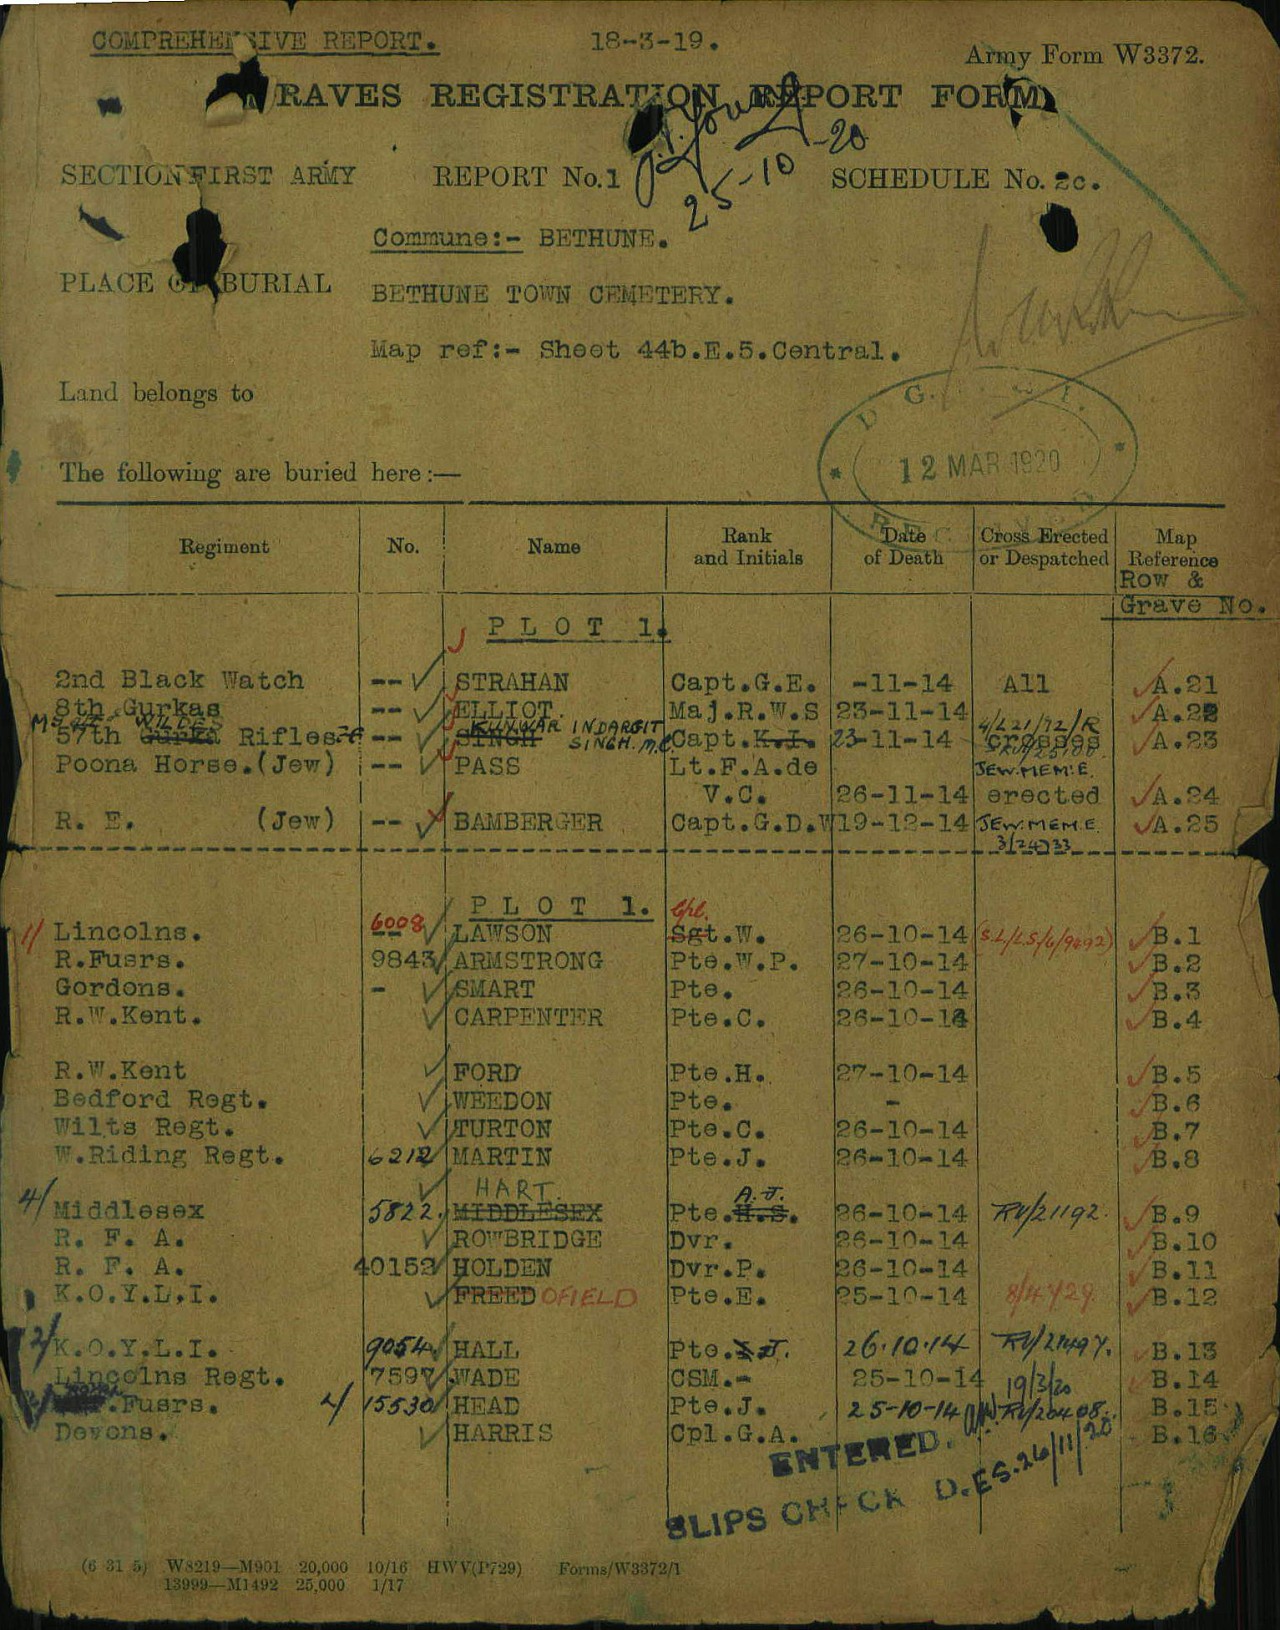 COMPREHENSIVE REPORT. 18-3-19. Army Form W3372.
GRAVES REGISTRATION REPORT FORM
25-10-20
SECTION FIRST ARMY REPORT No. 1 SCHEDULE No. 2c.
Commune:- BETHUNE.
PLACE OF BURIAL BETHUNE TOWN CEMETERY.
Map ref:- Sheet 44b.E.5.Central.
Land belongs to
D. G.
12 MAR 1920
The following are buried here:—
Regiment No. Name Rank and Initials Date of Death Cross Erected or Despatched Map Reference Row & Grave No.
PLOT 1.
2nd Black Watch -- STRAHAN Capt.G.E. -11-14 All A.21
8th Gurkas -- ELLIOT. Maj.R.W.S 23-11-14 A.22
WILDES KUNWAR INDARGIT SINGH. M.C. 4/L21/92/R
57th Gurka Rifles -- SINGH Capt.K.I. 23-11-14 crosses A.23
Poona Horse.(Jew) -- PASS Lt.F.A.de JEW.MEM.E.
V.C. 26-11-14 erected A.24
R. E. (Jew) -- BAMBERGER Capt.G.D.W 19-12-14 JEW.MEM.E. A.25
3/24733
PLOT 1.
6008 Cpl.
1/ Lincolns. -- LAWSON Sgt.W. 26-10-14 (S.L/LS/6/9492) B.1
R.Fusrs. 9843 ARMSTRONG Pte.W.P. 27-10-14 B.2
Gordons. - SMART Pte. 26-10-14 B.3
R.W.Kent. CARPENTER Pte.C. 26-10-14 B.4
R.W.Kent FORD Pte.H. 27-10-14 B.5
Bedford Regt. WEEDON Pte. - B.6
Wilts Regt. TURTON Pte.C. 26-10-14 B.7
W.Riding Regt. 6212 MARTIN Pte.J. 26-10-14 B.8
HART. A.J.
4/ Middlesex 5822. MIDDLESEX Pte.H.S. 26-10-14 RV/21192. B.9
R. F. A. ROWBRIDGE Dvr. 26-10-14 B.10
R. F. A. 40152 HOLDEN Dvr.P. 26-10-14 B.11
K.O.Y.L.I. FREED OFIELD Pte.E. 25-10-14 8/4729. B.12
2/ K.O.Y.L.I. 9054. HALL Pte. J. 26.10.14 RV/21497. B.13
Lincolns Regt. 7597 WADE CSM.- 25-10-14 B.14
19/3/20
.Fusrs. 4/ 15530 HEAD Pte.J. 25-10-14 RV/20408. B.15
Devons. HARRIS Cpl.G.A. B.16
ENTERED.
SLIPS CHECK D.ES. 26/11/20
(6 31 5) W8219—M901 20,000 10/16 HWV(P729) Forms/W3372/1
13999—M1492 25,000 1/17